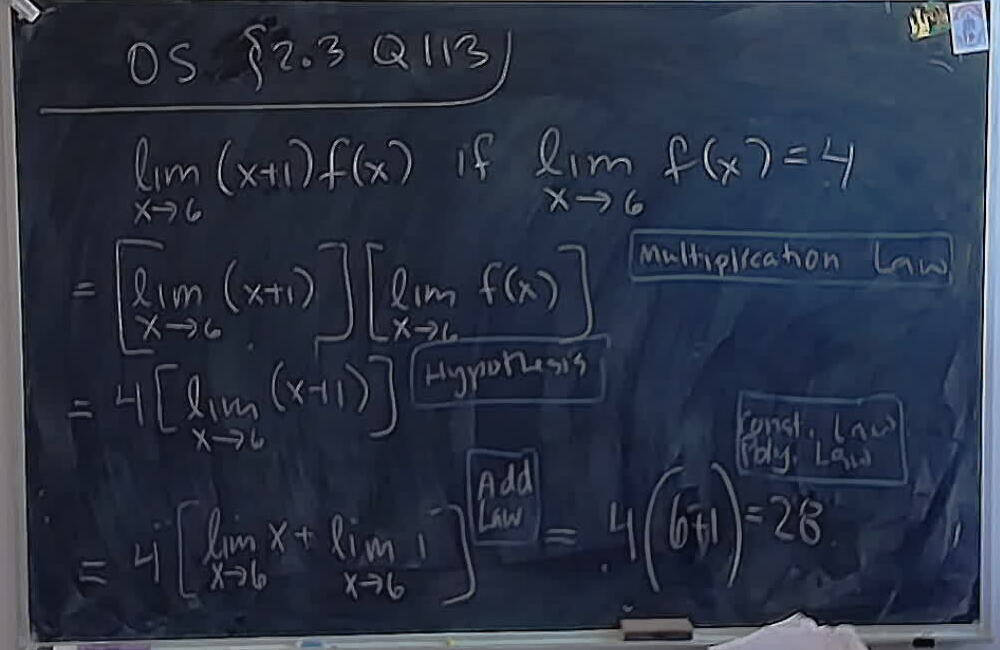 OS §2.3 Q113
lim x→6 (x+1)f(x) if lim x→6 f(x) = 4
= [lim x→6 (x+1)] [lim x→6 f(x)] Multiplication Law
= 4[lim x→6 (x+1)] Hypothesis
= 4[lim x→6 x + lim x→6 1] Add Law = 4(6+1) = 28 Const. Law Poly. Law